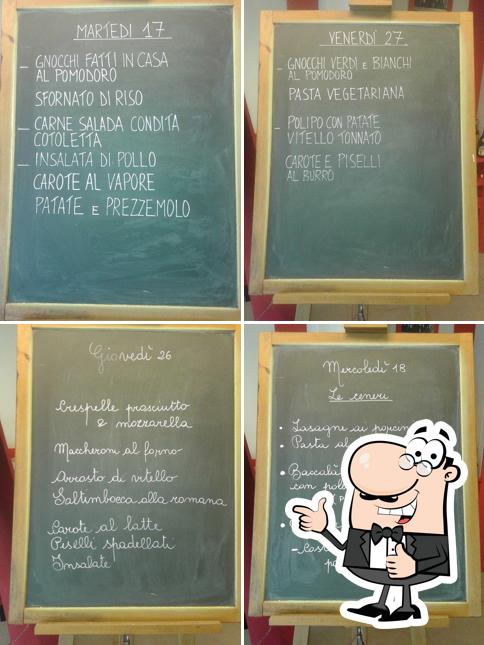 MARTEDI 17
– GNOCCHI FATTI IN CASA
AL POMODORO
SFORNATO DI RISO
– CARNE SALADA CONDITA
COTOLETTA
– INSALATA DI POLLO
CAROTE AL VAPORE
PATATE E PREZZEMOLO
VENERDÌ 27
– GNOCCHI VERDI E BIANCHI
AL POMODORO
PASTA VEGETARIANA
– POLIPO CON PATATE
VITELLO TONNATO
CAROTE E PISELLI
AL BURRO
Giovedì 26
Crespelle prosciutto
e mozzarella
Maccheroni al forno
Arrosto di vitello
Saltimbocca alla romana
Carote al latte
Piselli spadellati
Insalate
Mercoledì 18
Le ceneri
• Lasagne ai
• Pasta al
• Baccalà
con